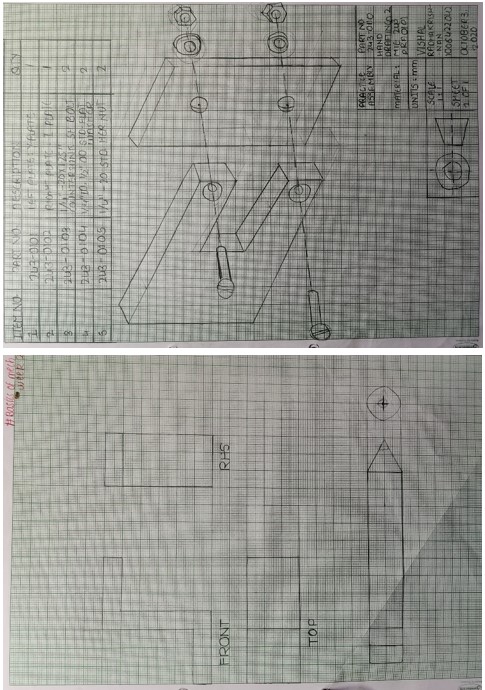 # Basics of mech
week 2
FRONT
RHS
TOP
ITEM NO PART NO DESCRIPTION QTY
1 243-0101 LEFT PLATE: Y PLATE 1
2 243-0102 RIGHT PLATE: I PLATE 1
3 243-0103 1/4"-20X1.25"
COUNTERSINK SH BOLT 2
4 243-0104 STD FLAT
WASHER 2
5 243-0105 1/4"-20 STD HEX NUT 2
PRACTICE
ASSEMBLY
PART NO
243-0110
HAND
DRAFTING 2
MATERIAL:
MIE 243
UNITS: mm
VISHAL
RADHAKRISH
-NAN
SCALE
1:1
SHEET
1 OF 1
OCTOBER 3
2020